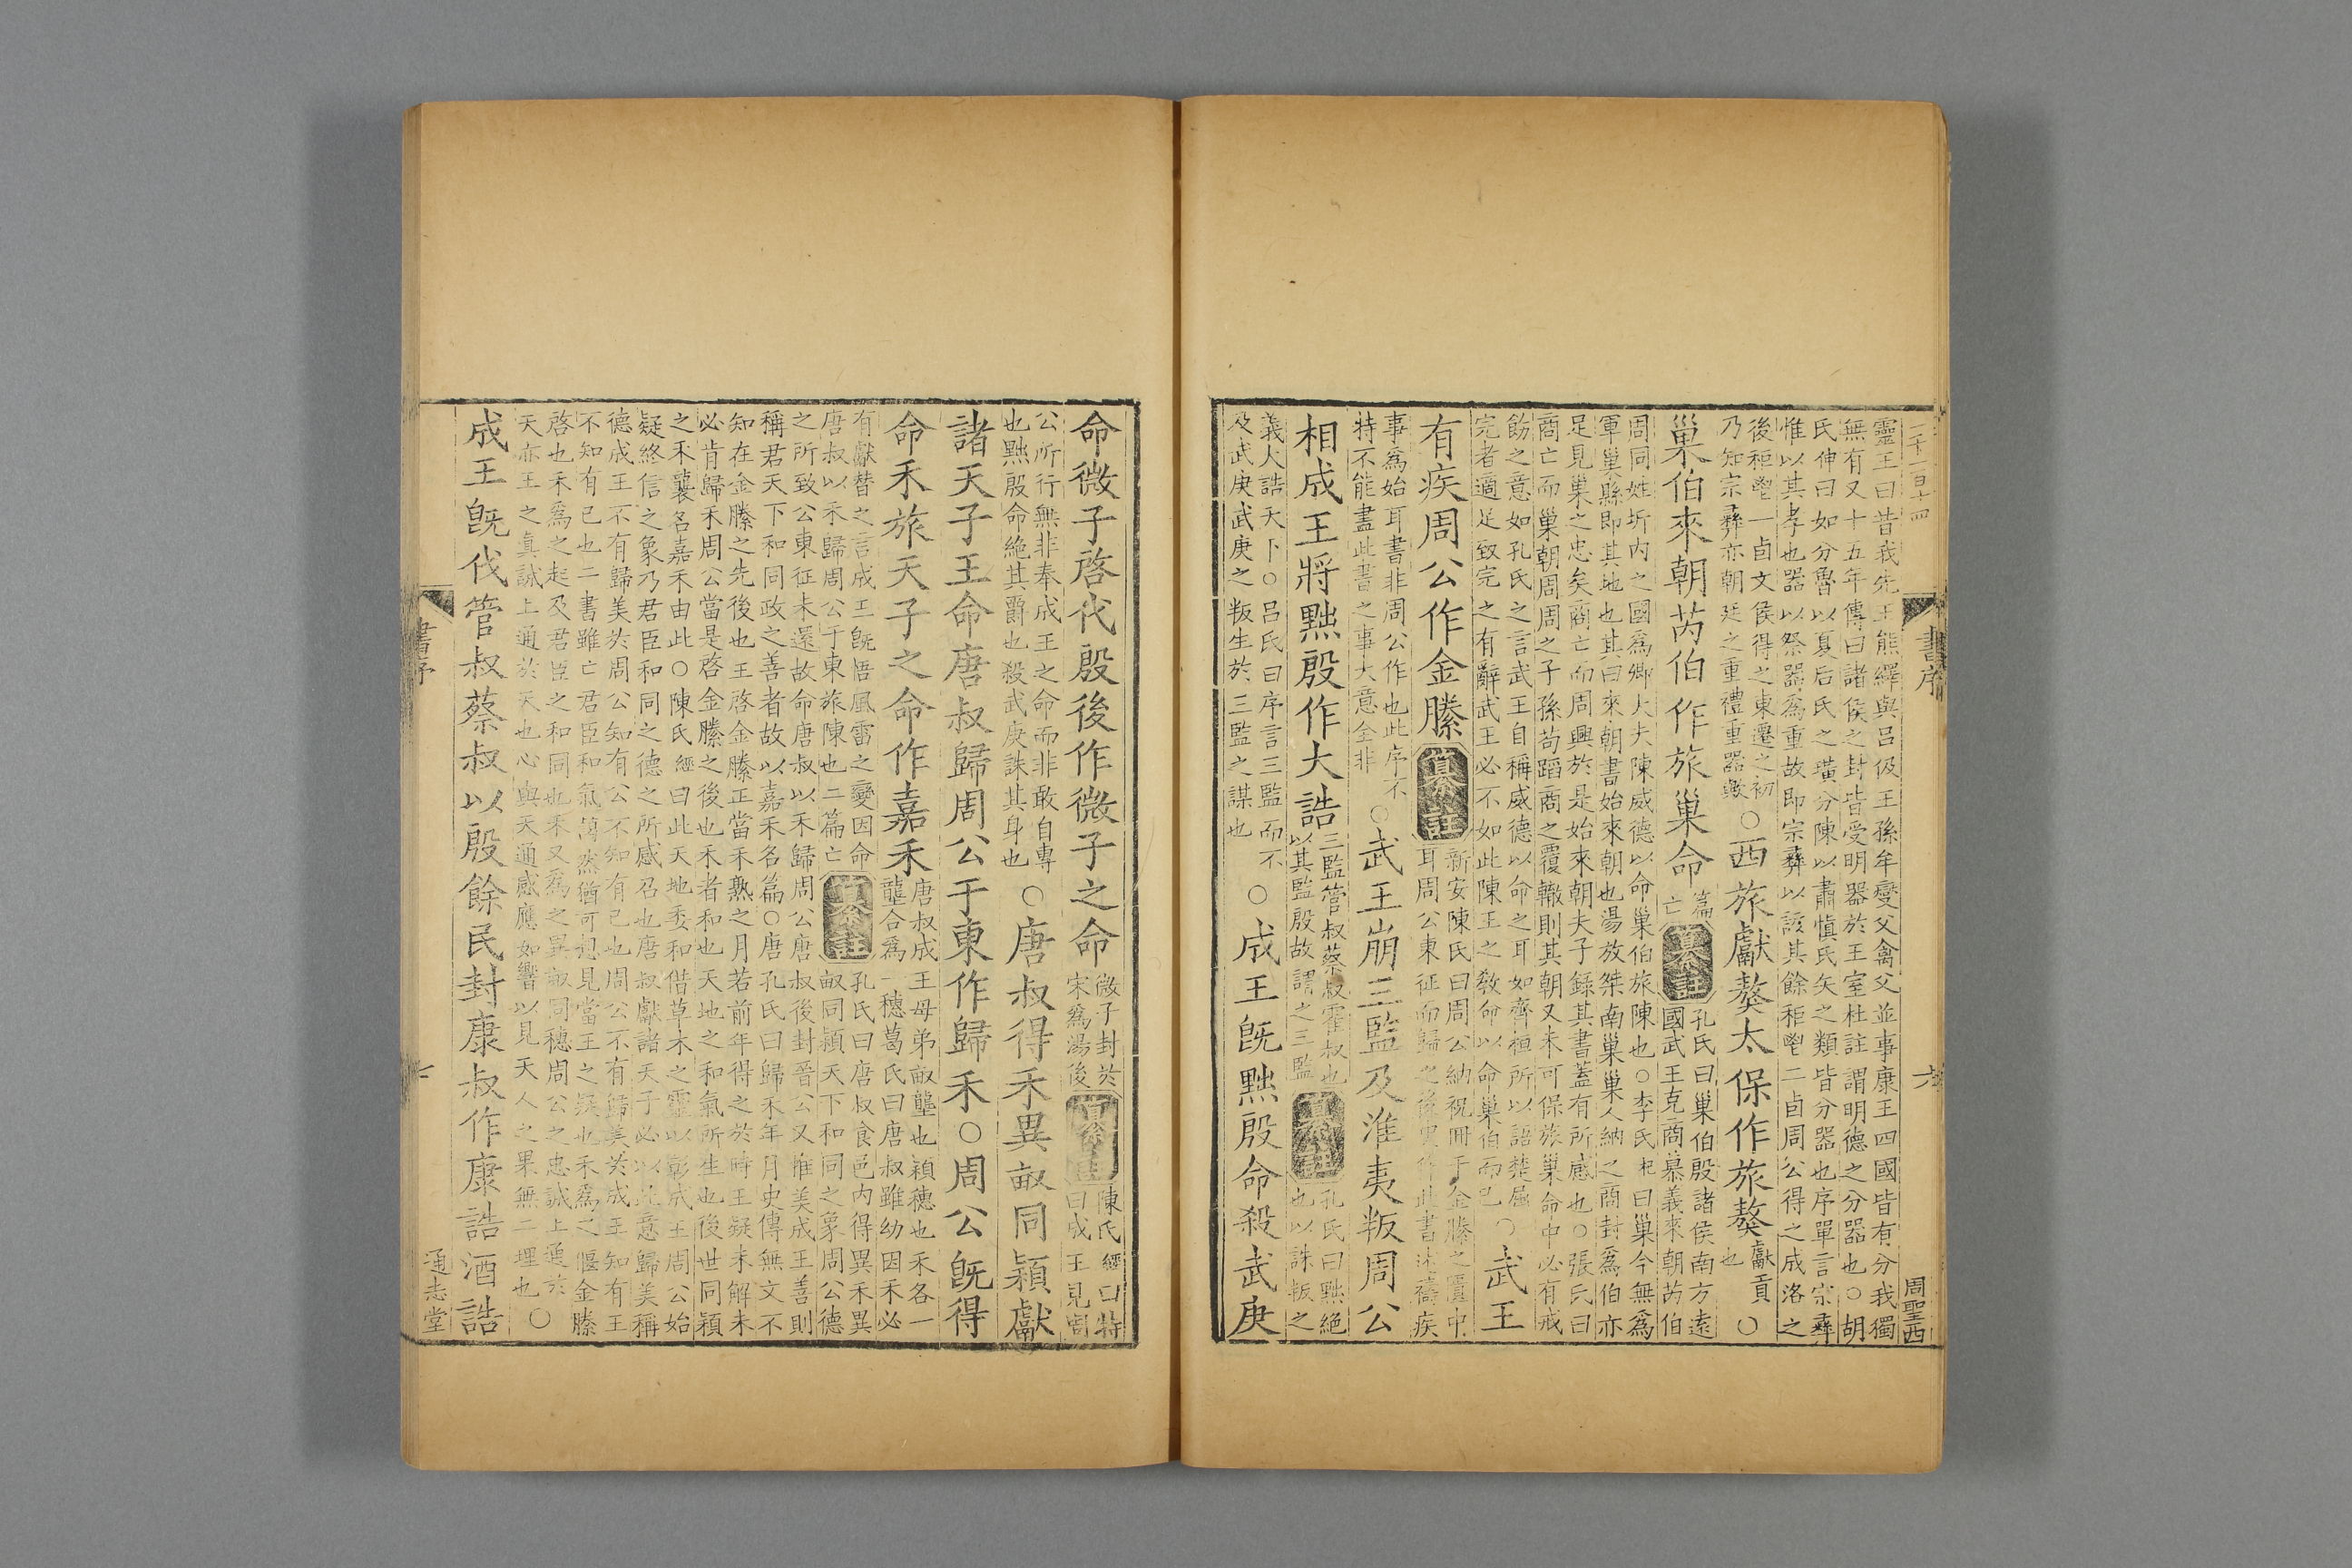 二十一百十四
書序
六
周聖西
靈王曰昔我先王熊繹與呂伋王孫牟燮父禽父並事康王四國皆有分我獨
無有又十五年傳曰諸侯之封皆受明器於王室杜註謂明德之分器也○胡
氏伸曰如分魯以夏后氏之璜分陳以肅慎氏矢之類皆分器也序單言宗彝
惟以其孝也器以祭器為重故即宗彝以該其餘秬鬯二卣周公得之成洛之
後秬鬯一卣文侯得之東遷之初
乃知宗彝亦朝廷之重禮重器歟
○西旅獻獒太保作旅獒
獻貢
也
○
巢伯來朝芮伯作旅巢命
篇
亡
纂註
孔氏曰巢伯殷諸侯南方遠
國武王克商慕義來朝芮伯
周同姓圻内之國為卿大夫陳威德以命巢伯旅陳也○李氏杞曰巢今無為
軍巢縣即其地也其曰來朝書始來朝也湯放桀南巢巢人納之商封為伯亦
足見巢之忠矣商亡而周興於是始來朝夫子錄其書蓋有所感也○張氏曰
商亡而巢朝周周之子孫苟蹈商之覆轍則其朝又未可保旅巢命中必有戒
飭之意如孔氏之言武王自稱威德以命之耳如齊桓所以語楚屈
完者適足致完之有辭武王必不如此陳王之敎命以命巢伯而已
○武王
有疾周公作金縢
纂註
新安陳氏曰周公納祝冊于金縢之匱中
耳周公東征而歸之後史作此書述禱疾
事為始耳書非周公作也此序不
特不能盡此書之事大意全非
○武王崩三監及淮夷叛周公
相成王將黜殷作大誥
三監管叔蔡叔霍叔也
以其監殷故謂之三監
纂註
孔氏曰黜絶
也以誅叛之
義大誥天下○呂氏曰序言三監而不
及武庚武庚之叛生於三監之謀也
○成王旣黜殷命殺武庚
命微子啓代殷後作微子之命
微子封於
宋為湯後
纂註
陳氏經曰特
曰成王見周
公所行無非奉成王之命而非敢自專
也黜殷命絶其爵也殺武庚誅其身也
○唐叔得禾異畝同穎獻
諸天子王命唐叔歸周公于東作歸禾○周公旣得
命禾旅天子之命作嘉禾
唐叔成王母弟畝壟也穎穗也禾各一
壟合為一穗葛氏曰唐叔雖幼因禾必
有獻替之言成王旣悟風雷之變因命
唐叔以禾歸周公于東旅陳也二篇亡
纂註
孔氏曰唐叔食邑内得異禾異
畝同穎天下和同之象周公德
之所致公東征未還故命唐叔以禾歸周公唐叔後封晉公又推美成王善則
稱君天下和同政之善者故以嘉禾名篇○唐孔氏曰歸禾年月史傳無文不
知在金縢之先後也王啓金縢正當禾熟之月若前年得之於時王疑未解未
必肯歸禾周公當是啓金縢之後也禾者和也天地之和氣所生也後世同穎
之禾襲名嘉禾由此○陳氏經曰此天地委和借草木之靈以彰成王周公始
疑終信之象乃君臣和同之德之所感召也唐叔獻諸天子必以此意歸美稱
德成王不有歸美於周公知有公不知有已也周公不有歸美於成王知有王
不知有已也二書雖亡君臣和氣藹然猶可想見當王之疑也禾為之偃金縢
啓也禾為之起及君臣之和同也禾又為之異畝同穗周公之忠誠上通於
天亦王之真誠上通於天也心與天通感應如響以見天人之果無二理也
○
成王旣伐管叔蔡叔以殷餘民封康叔作康誥酒誥
書序
七
通志堂